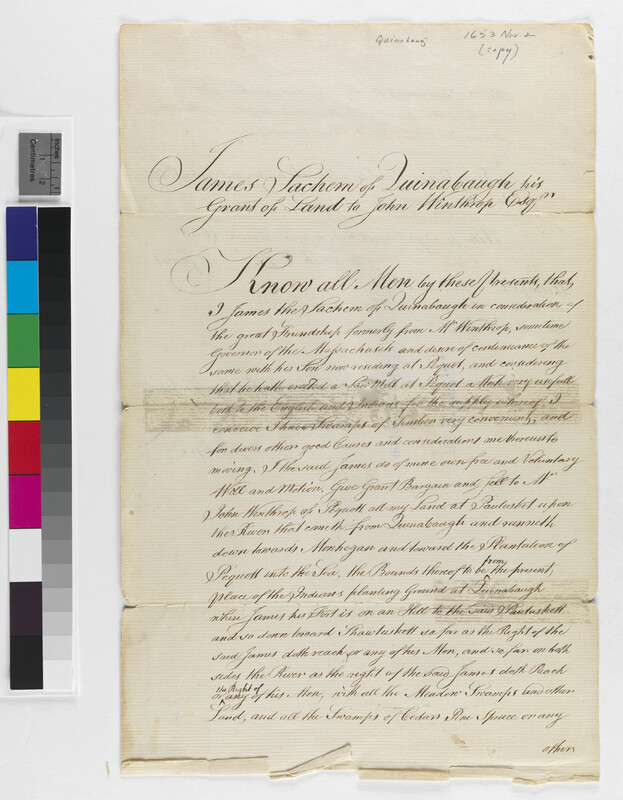 Quinebaug
1653 Nov. 2
(copy)
Inches
Centimetres
James Sachem of Quinabaugh his
Grant of Land to John Winthrop Esqr
Know all Men by these Presents, that,
I James the Sachem of Quinabaugh in consideration of
the great Friendship formerly from Mr Winthrop, sometime
Governor of the Massachusets and desire of continuance of the
same with his Son now residing at Pequot, and considering
that he hath erected a Saw Mill at Pequot a Work very usefull
both to the English and Indians for the supply whereof I
conceive I have Swamps of Timber very convenient, and
for divers other good Causes and considerations me hereunto
moving, I the said James do of mine own free and Voluntary
Will and Motion, Give Grant Bargain and Sell to Mr
John Winthrop of Pequott all my Land at Pautuskot upon
the River that cometh from Quinabaugh and runneth
down towards Monhegan and toward the Plantation of
Pequott into the Sea, the Bounds thereof to be from the present,
place of the Indians planting Ground at Quinabaugh
where James his Fort is on an Hill to the said Pautuskett
and so down toward Shawtuskett so far as the Right of the
said James doth reach or any of his Men, and so far on both
sides the River as the right of the said James doth Reach
or the Right of any of his Men, with all the Meadow Swamps and other
Land, and all the Swamps of Cedar Pine Spruce or any
other